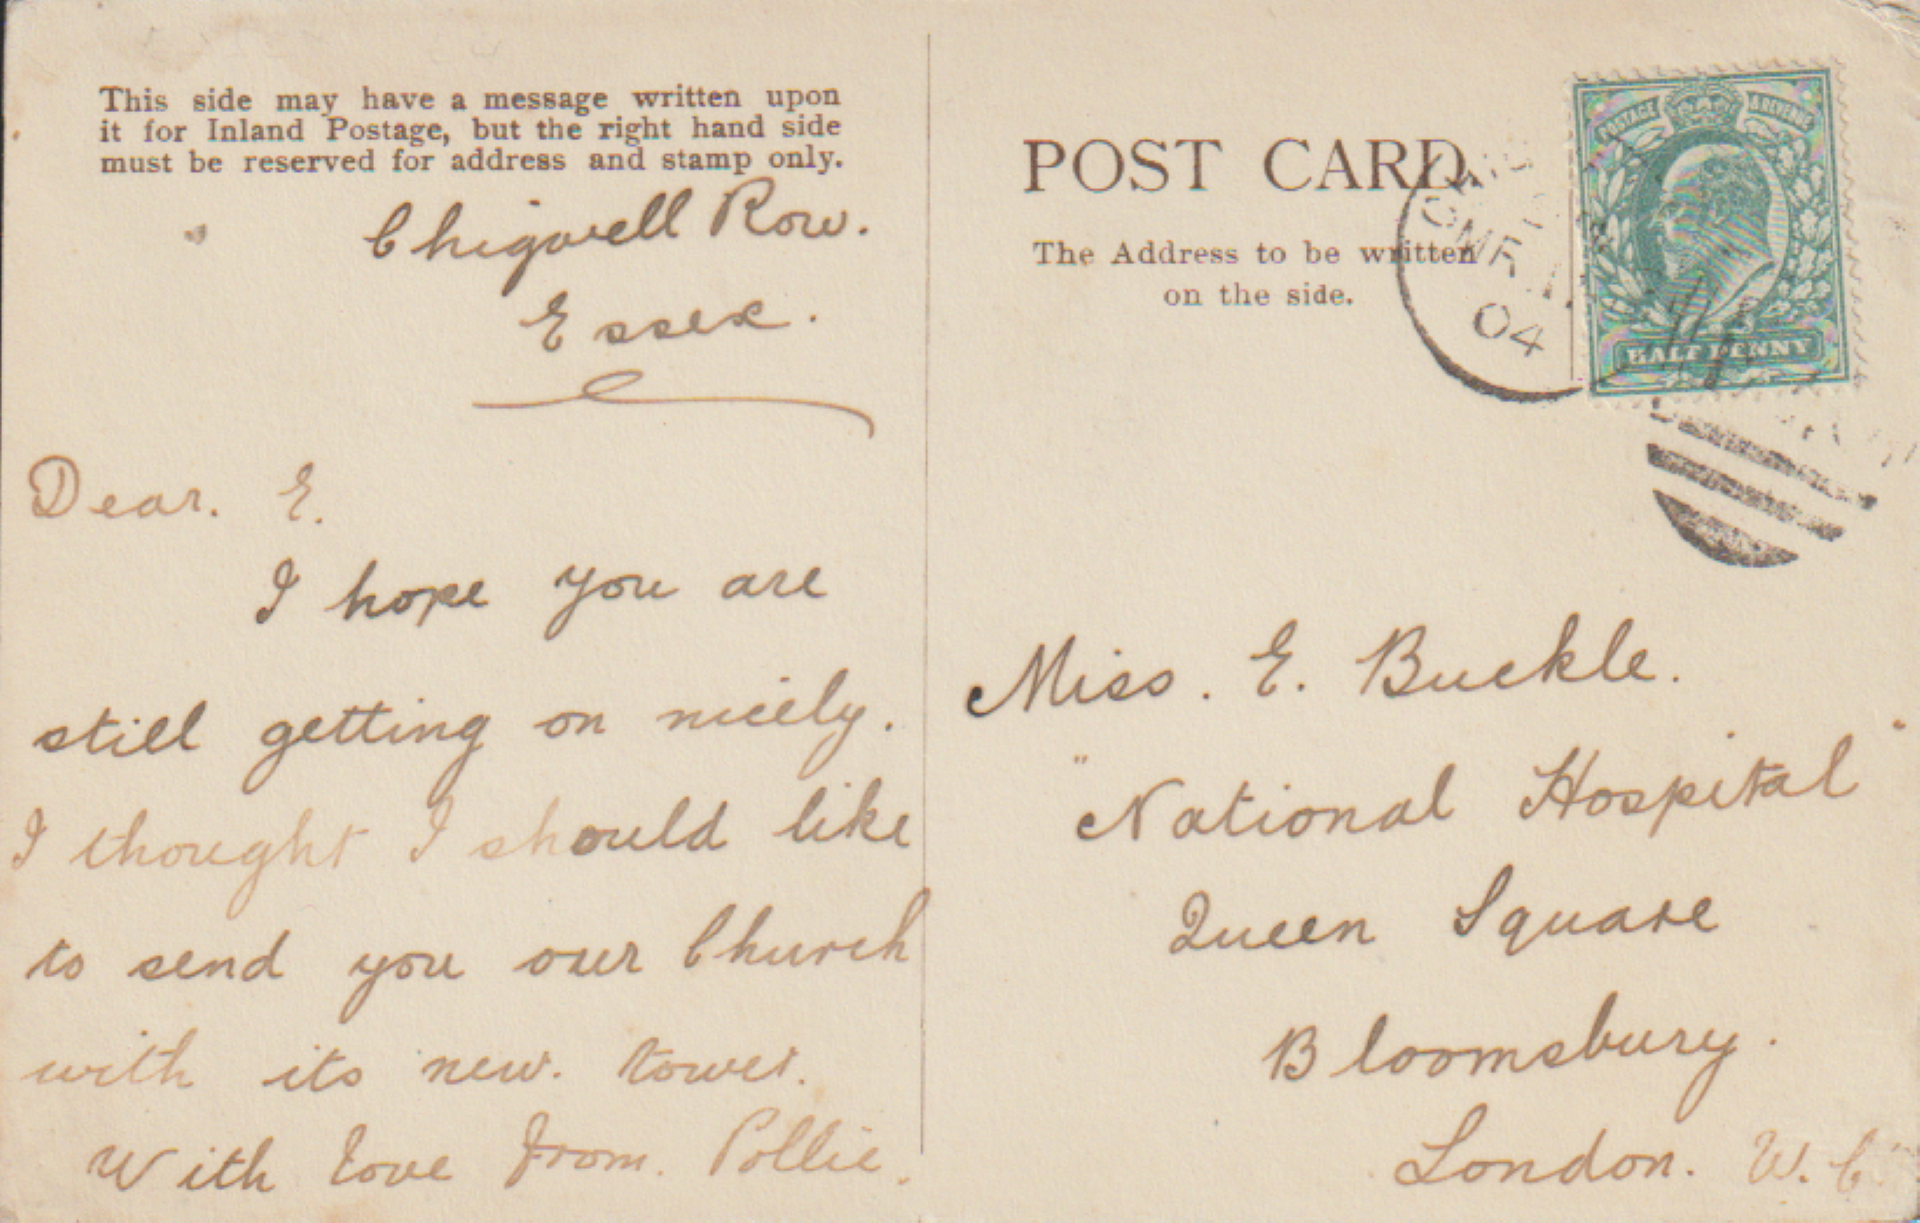 This side may have a message written upon
it for Inland Postage, but the right hand side
must be reserved for address and stamp only.
Chigwell Row.
Essex.
Dear. E.
I hope you are
still getting on nicely.
I thought I should like
to send you our Church
with its new. tower.
With love from. Pollie.
POST CARD.
The Address to be written
on the side.
04
POSTAGE & REVENUE
HALF PENNY
Miss. E. Buckle.
"National Hospital"
Queen Square
Bloomsbury.
London. W.C